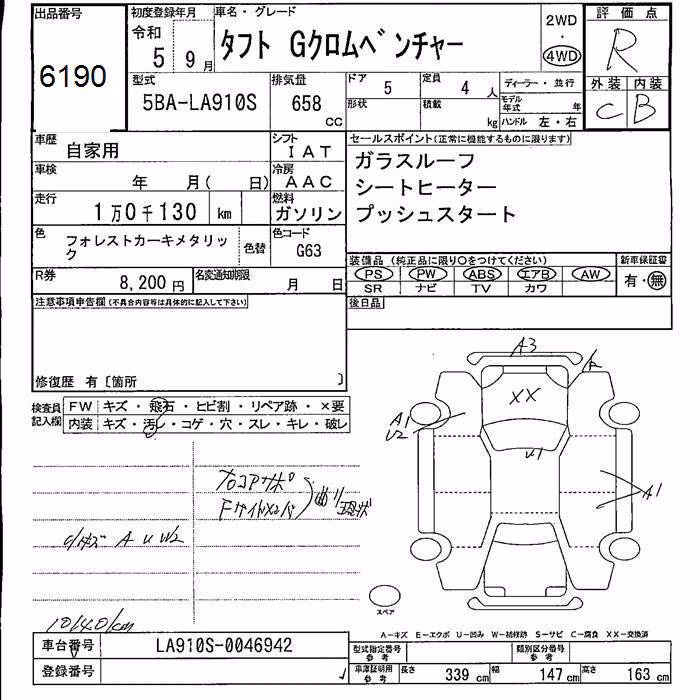 出品番号
6190
初度登録年月
令和
5 9月
車名・グレード
タフト Gクロムベンチャー
2WD
・
4WD
評価点
R
型式
5BA-LA910S
排気量
658
cc
ドア
5
定員
4 人
形状
積載
kg
ディーラー・並行
モデル年式 年
ハンドル 左・右
外装 内装
C B
車歴
自家用
シフト
IAT
車検
年 月( 日)
冷房
AAC
走行
1万0千130 km
燃料
ガソリン
色
フォレストカーキメタリック
色替
色コード
G63
R券
8,200 円
名変通知期限
月 日
セールスポイント(正常に機能するものに限ります)
ガラスルーフ
シートヒーター
プッシュスタート
装備品 (純正品に限り○をつけてください)
新車保証書
PS PW ABS エアB AW
有・無
SR ナビ TV カワ
後日品
注意事項申告欄(不具合内容等は具体的に記入して下さい)
修復歴 有〔箇所 〕
検査員記入欄
FW キズ・飛石・ヒビ割・リペア跡・×要
内装 キズ・汚レ・コゲ・穴・スレ・キレ・破レ
A3
XX
A1
U2
U1
A1
フロコアサポ
Fサイドメンバ
曲り
現状
小キズ A U W2
10140km
スペア
A-キズ E-エクボ U-凹み W-補修跡 S-サビ C-腐食 XX-交換済
車台番号
LA910S-0046942
登録番号
型式指定番号
参考
類別区分番号
参考
車庫証明用
参考
長さ 339 cm 幅 147 cm 高さ 163 cm